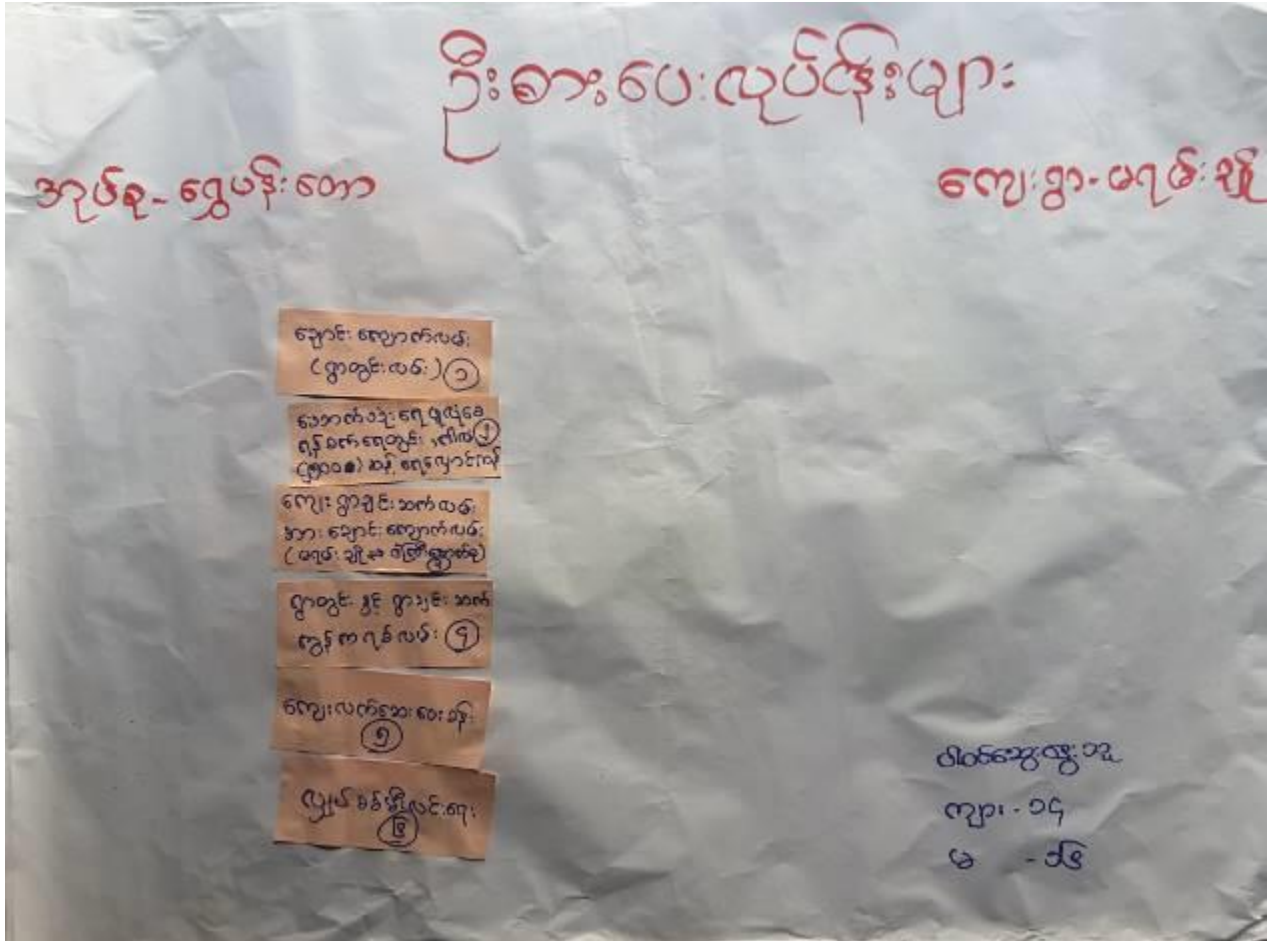 ဦးစားပေးလုပ်ငန်းများ
အုပ်စု - ရွှေပန်းတော
ကျေးရွာ - မရမ်းချို
ချောင်းကျောက်လမ်း
(ရွာတွင်းလမ်း) ၁
သောက်သုံးရေဖူလုံစေ
ရန် စက်ရေတွင်း, ဂါလံ ၂
(၅၀၀၀) ဆန့် ရေလှောင်ကန်
ကျေးရွာချင်းဆက်လမ်း
အား ချောင်းကျောက်လမ်း
(မရမ်းချို
ရွာတွင်း နှင့် ရွာချင်းဆက်
ကွန်ကရစ်လမ်း ၄
ကျေးလက်ဆေးပေးခန်း
၅
လျှပ်စစ်မီးလင်းရေး
၆
ပါဝင်ဆွေးနွေးသူ
ကျား - ၁၄
မ - ၁၆